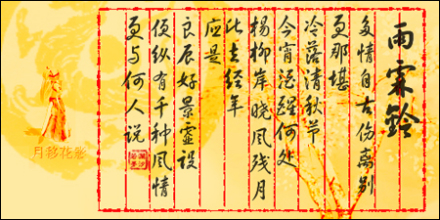 雨霖鈴
多情自古伤离别
更那堪
冷落清秋节
今宵酒醒何处
杨柳岸晓风残月
此去经年
应是
良辰好景虚设
便纵有千种风情
更与何人说
月移花影